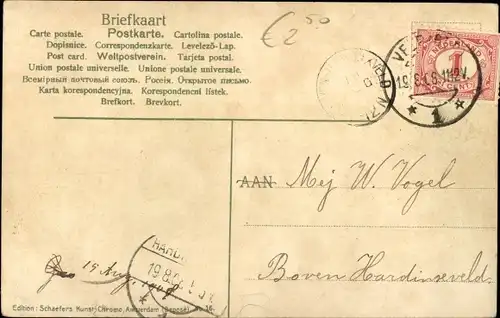 Briefkaart
Carte postale. Postkarte. Cartolina postale.
Dopisnice. Correspondenzkarte. Levelező-Lap.
Post card. Weltpostverein. Tarjeta postal.
Union postale universelle. Unione postale universale.
Всемірный почтовый союзъ. Россія. Открытое письмо.
Karta korespondencyjna. Korespondenční lístek.
Brefkort. Brevkort.
€2,50
NEDERLAND
1
CENT
1
AAN Mej W. Vogel
Boven Hardinxveld.
HARDI
19.8.0
19 Aug. 190
Edition: Schaefers Kunst-Chrome, Amsterdam